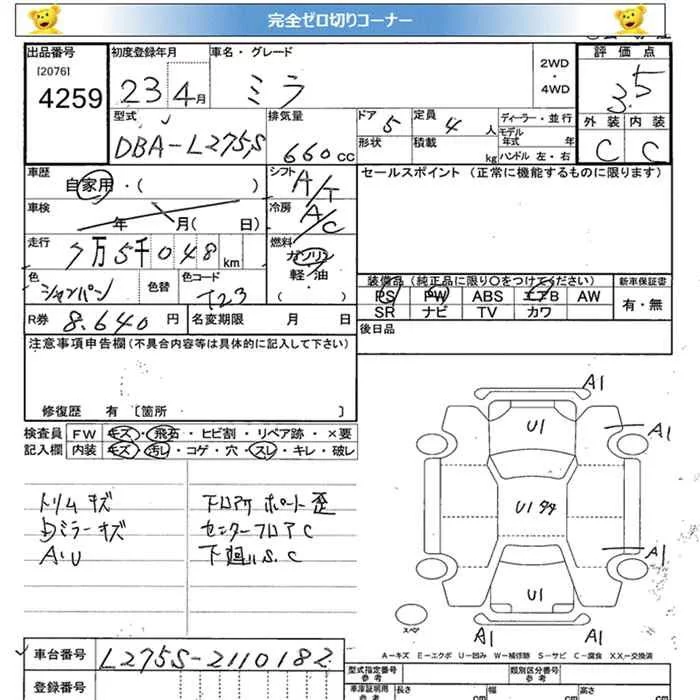 完全ゼロ切りコーナー
出品番号 初度登録年月 車名・グレード 2WD・4WD 評価点
[2076]
4259 23 4月 ミラ 3.5
型式 排気量 ドア 5 定員 4 人 ディーラー・並行 外装 内装
DBA-L275S 660cc 形状 積載 kg モデル年式 年 ハンドル 左・右 C C
車歴 自家用・( ) シフト A/T セールスポイント (正常に機能するものに限ります)
車検 年 月( 日) 冷房 A/C
走行 7万5千048km 燃料 ガソリン 軽・油 ( )
色 シャンパン 色替 色コード T23 装備品 (純正品に限り○をつけてください) 新車保証書
PS PW ABS エアB AW 有・無
SR ナビ TV カワ
R券 8.640円 名変期限 月 日 後日品
注意事項申告欄(不具合内容等は具体的に記入して下さい)
修復歴 有 [箇所 ]
検査員 FW キズ・飛石・ヒビ割・リペア跡・×要
記入欄 内装 キズ・汚レ・コゲ・穴・スレ・キレ・破レ
トリムキズ フロアサポート歪
Dミラーキズ センターフロアC
A.U 下廻りS.C
A1
U1 A1
U1
A1
U1
スペア A1 A1
A-キズ E-エクボ U-凹み W-補修跡 S-サビ C-腐食 XX-交換済
車台番号 L275S-2110182 型式指定番号 参考 類別区分番号 参考
登録番号 車庫証明用 参考 長さ cm 幅 cm 高さ cm